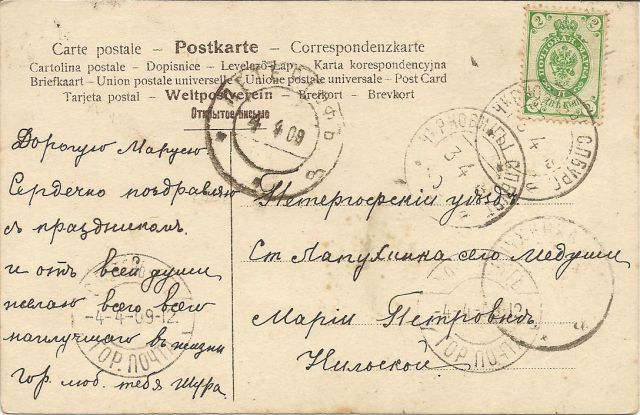 Carte postale – Postkarte – Correspondenzkarte
Cartolina postale – Dopisnice – Levelező-Lap – Karta korespondencyjna
Briefkaart – Union postale universelle – Unione postale universale – Post Card
Tarjeta postal – Weltpostverein – Brefkort – Brevkort
Открытое письмо
2
2
4 4 09
ЧЕРНОВИЦЫ СПБУРГ
3 4
Дорогую Марусю
Сердечно поздравляю
съ праздникомъ
и отъ всей души
желаю всего всего
наилучшаго въ жизни
гор. люб. тебя Шура.
Петергофскій уѣздъ
Ст Лапухинка село Медуши
Маріи Петровнѣ
Нилоской
-4-4-09-12
ГОР. ПОЧТА
-4-4-09-12
ГОР. ПОЧТ